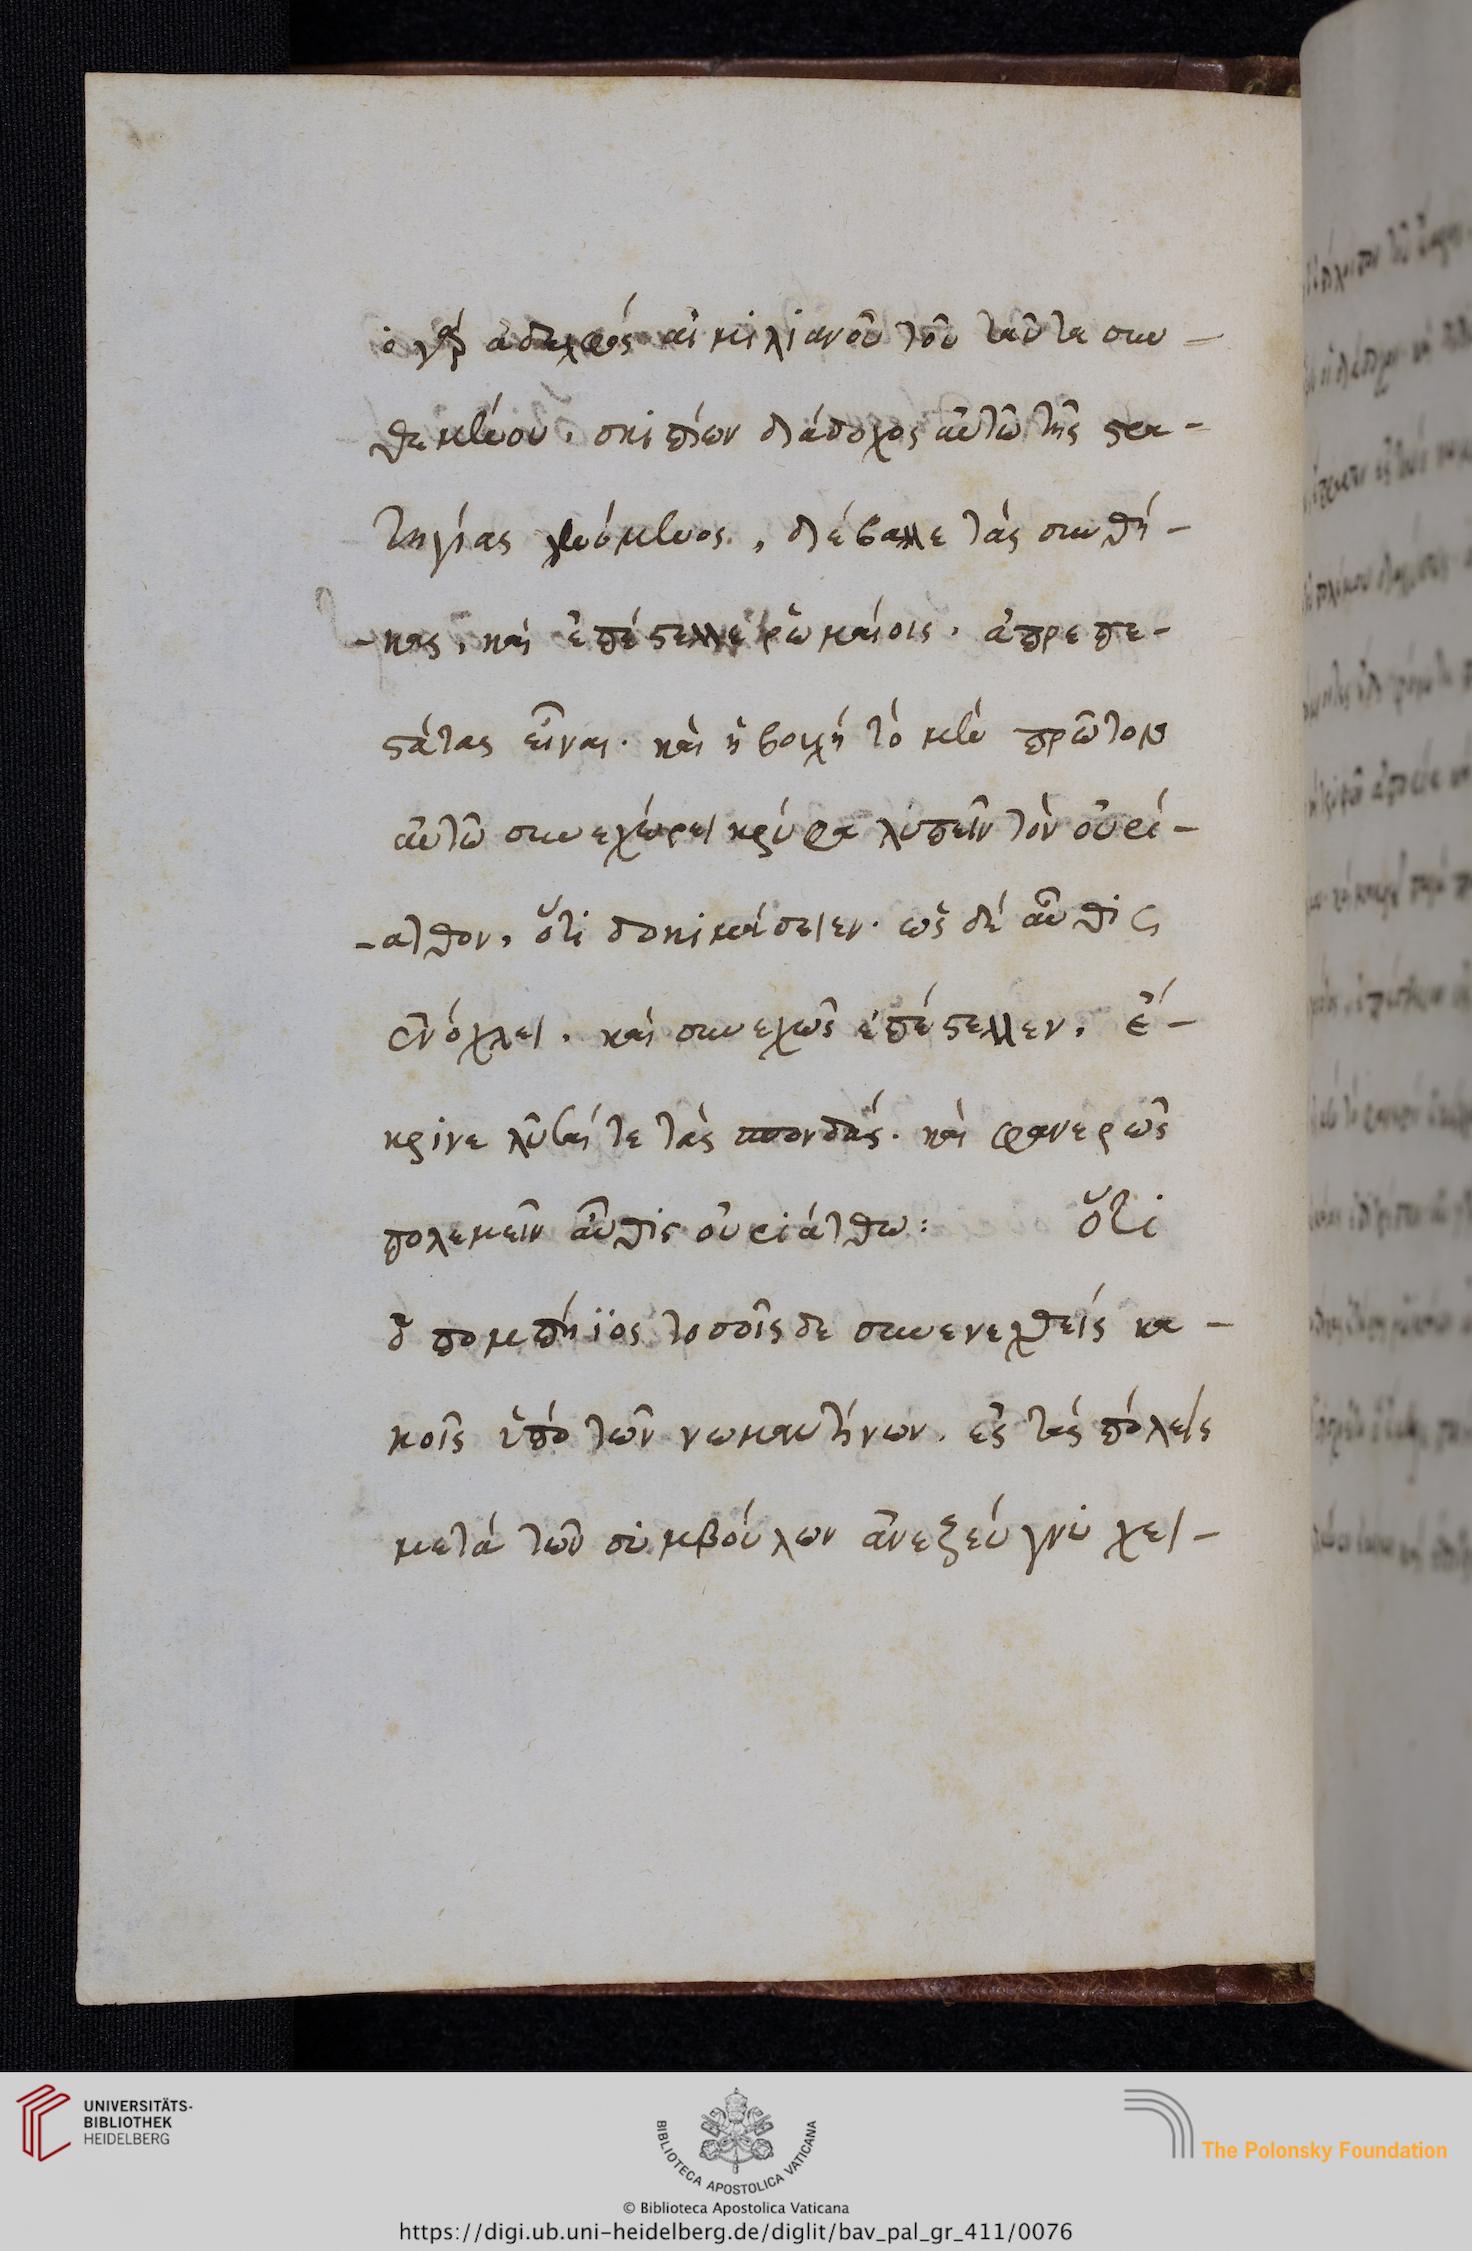 ὁ γὰρ ἀδελφός αἰμιλιανοῦ τοῦ ταῦτα συν-
θεμένου. σκιπίων διάδοχος αὐτῶ τῆς στρα-
τηγίας γενόμενος., διέβαλλε τὰς συνθή-
-κας, καὶ ἐπέστελλε ῥωμαίοις. ἀπρεπε-
στάτας εἶναι. καὶ ἡ βουλή τὸ μὲν πρῶτον
αὐτῶ συνεχώρει κρύφα λυπεῖν τὸν οὐρί-
-ατθον, ὅτι δοκιμάσειεν. ὡς δὲ αὖθις
ἐνόχλει. καὶ συνεχῶς ἐπέστελλεν. ἔ-
κρινε λῦσαί τε τὰς σπονδάς. καὶ φανερῶς
πολεμεῖν αὖθις οὐριάτθω: ὅτι
ὁ πομπήϊος τοσοῖσδε συνενεχθείς κα-
κοῖς ὑπὸ τῶν νωμαντίνων. ἐς τὰς πόλεις
μετὰ τῶν συμβούλων ἀνεζεύγνυ χει-
UNIVERSITÄTS-
BIBLIOTHEK
HEIDELBERG
BIBLIOTECA APOSTOLICA VATICANA
The Polonsky Foundation
© Biblioteca Apostolica Vaticana
https://digi.ub.uni-heidelberg.de/diglit/bav_pal_gr_411/0076